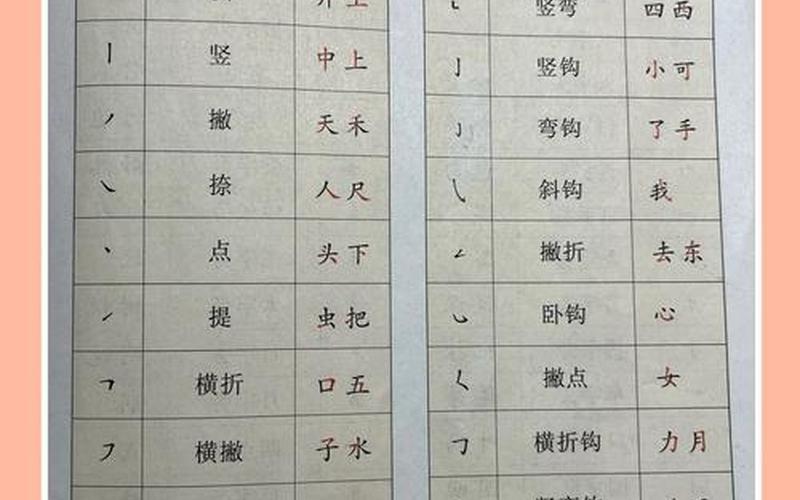 上
丨 竖 中 上
丿 撇 天 禾
㇏ 捺 人 尺
丶 点 头 下
㇀ 提 虫 把
㇕ 横折 口 五
㇇ 横撇 子 水
㇄ 竖弯 四 西
亅 竖钩 小 可
㇁ 弯钩 了 手
㇂ 斜钩 我
㇜ 撇折 去 东
㇃ 卧钩 心
㇛ 撇点 女
㇆ 横折钩 力 月